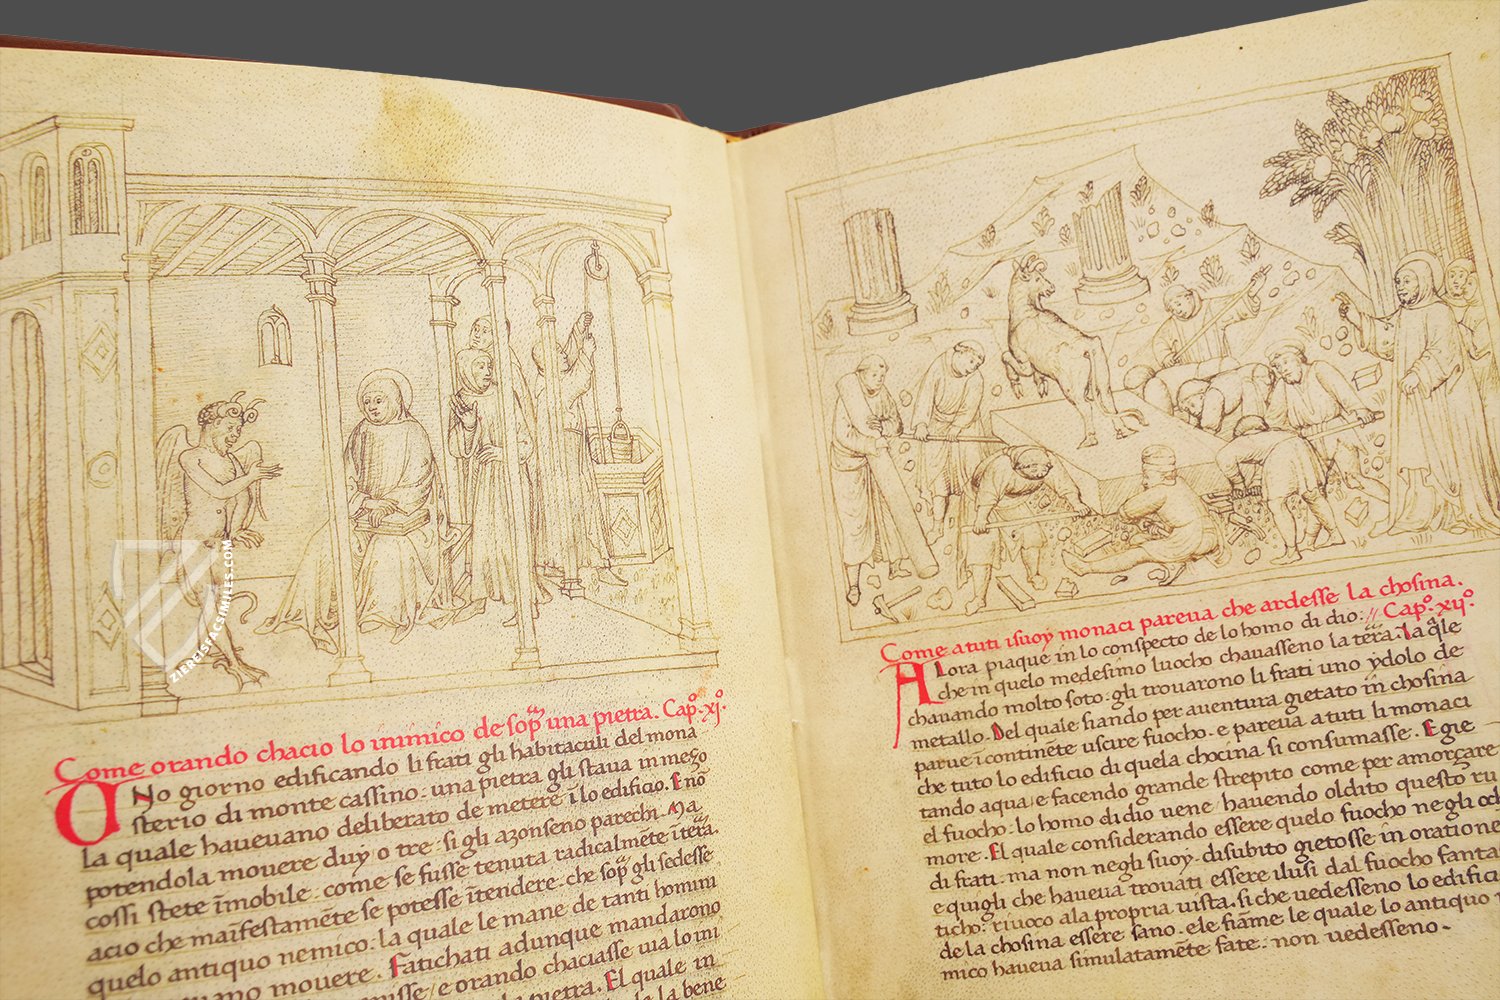 Come orando chacio lo inimico de sop̄ una pietra. Cap.º xj.º
UNo giorno edificando li frati gli habitaculi del mona
sterio di monte cassino. una pietra gli staua in mezo
la quale haueuano deliberato de metere ī lo edificio. E nō
potendola mouere duy o tre. si gli azonseno parechi. Ma
cossi stete īmobile. come se fusse tenuta radicalmēte ī terā.
acio che maīfestamēte se potesse ītendere. che sop̄ gli sedesse
quelo antiquo nemico. la quale le mane de tanti homini
mouere. Fatichati adunque mandarono
e orando chaciasse uia lo ini
pietra. El quale in
la bene
Come a tuti i suoy monaci pareua che ardesse la chosina.
Cap.º xij.º
ALora piaque in lo conspecto de lo homo di dio:
che in quelo medesimo luocho chauasseno la tera. La q̄le
chauando molto soto. gli trouarono li frati uno ydolo de
metallo. Del quale siando per auentura gietato in chosina
parue ī continēte uscire fuocho. e pareua a tuti li monaci
che tuto lo edificio di quela chocina si consumasse. E gie
tando aqua. e facendo grande strepito come per amorçare
el fuocho. lo homo di dio uene. hauendo oldito questo ru
more. El quale considerando essere quelo fuocho negli
di frati. ma non negli suoy. disubito gietosse in oratione
e quigli che haueua trouati essere ilusi dal fuocho fanta
ticho. riuoco ala propria uista. si che uedesseno lo edifici
de la chosina essere sano. e le fiāme le quale lo antiquo
mico haueua simulatamēte fate. non uedesseno.
ZIEREISFACSIMILES.COM